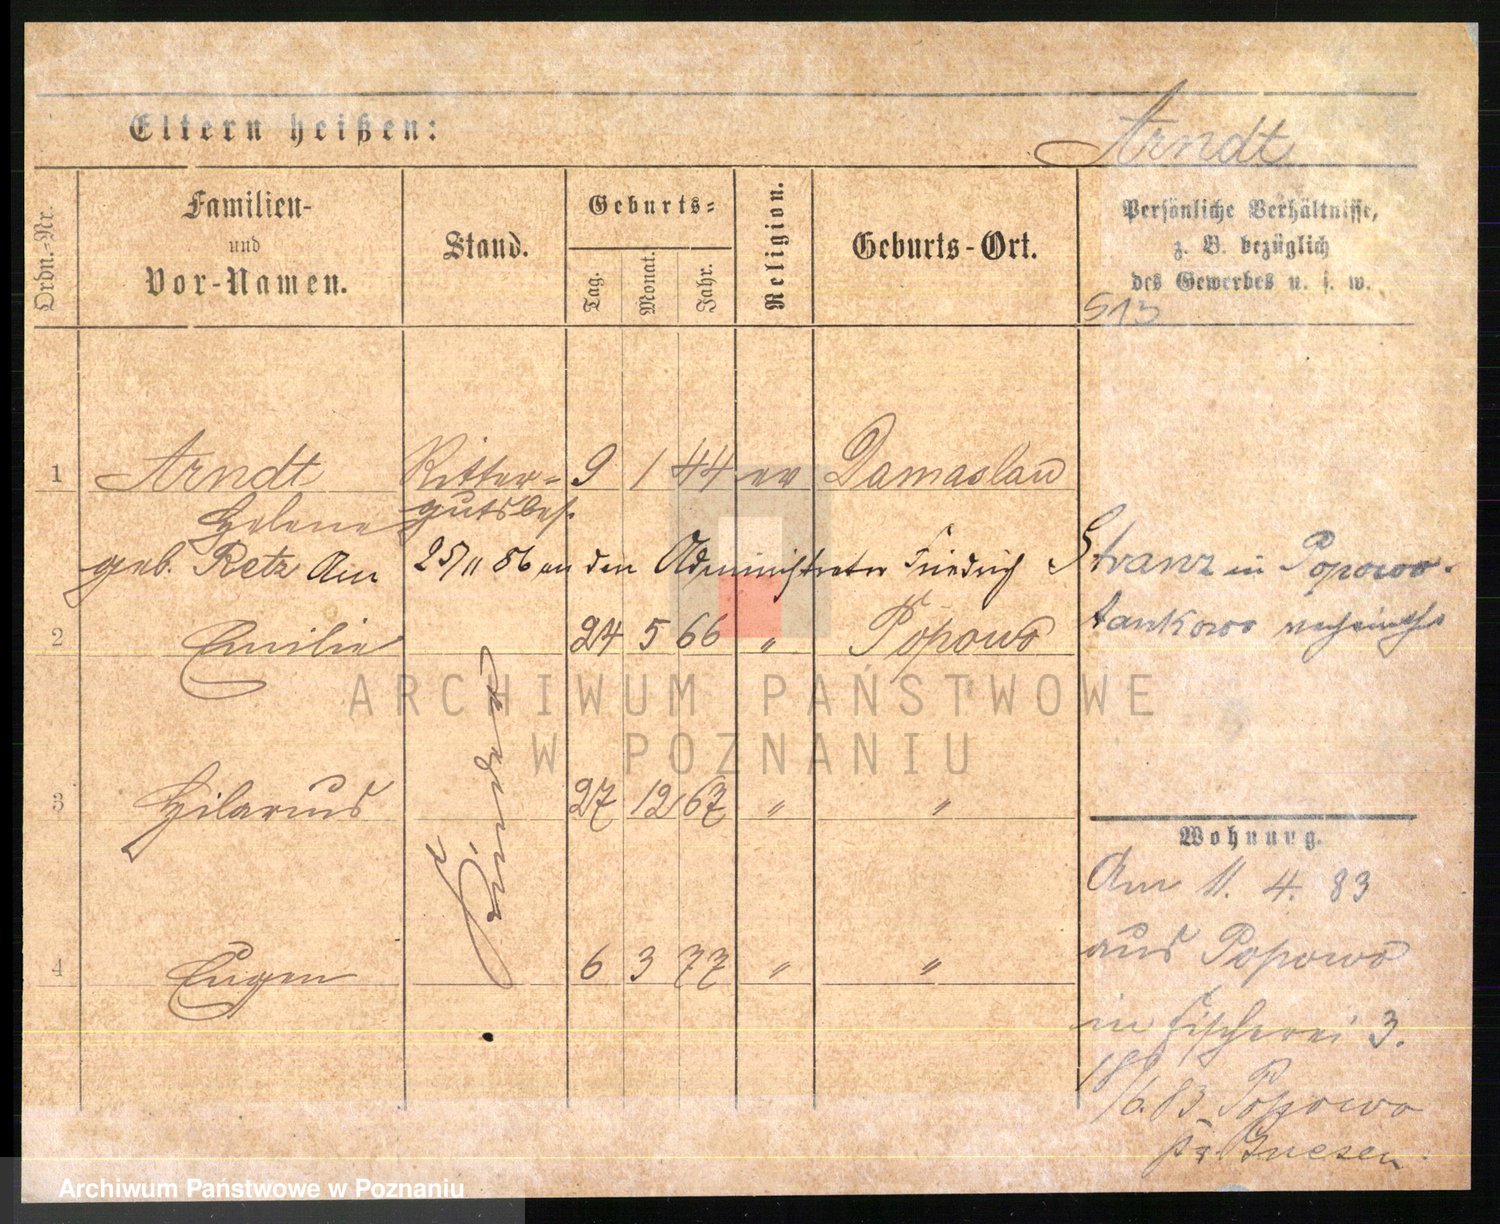 Eltern heißen:
Arndt
Ordn.-Nr.
Familien-
und
Vor-Namen.
Stand.
Geburts-
Tag.
Monat.
Jahr.
Religion.
Geburts-Ort.
Persönliche Verhältnisse,
z. B. bezüglich
des Gewerbes u. s. w.
513
1 Arndt Ritter- 9 1 44 ev Damaslau
Helene gutsbes.
geb. Retz Am 25/11 86 an den Administrator Friedrich Stranz in Popowo-
2 Emilie 24 5 66 " Popowo
tankowo
Kinder
3 Hilarius 27 12 67 " "
4 Eugen 6 3 77 " "
Wohnung.
Am 11. 4. 83
aus Popowo
in Fischerei 3.
18/6.83 Popowo
Gnesen
ARCHIWUM PAŃSTWOWE
W POZNANIU
Archiwum Państwowe w Poznaniu